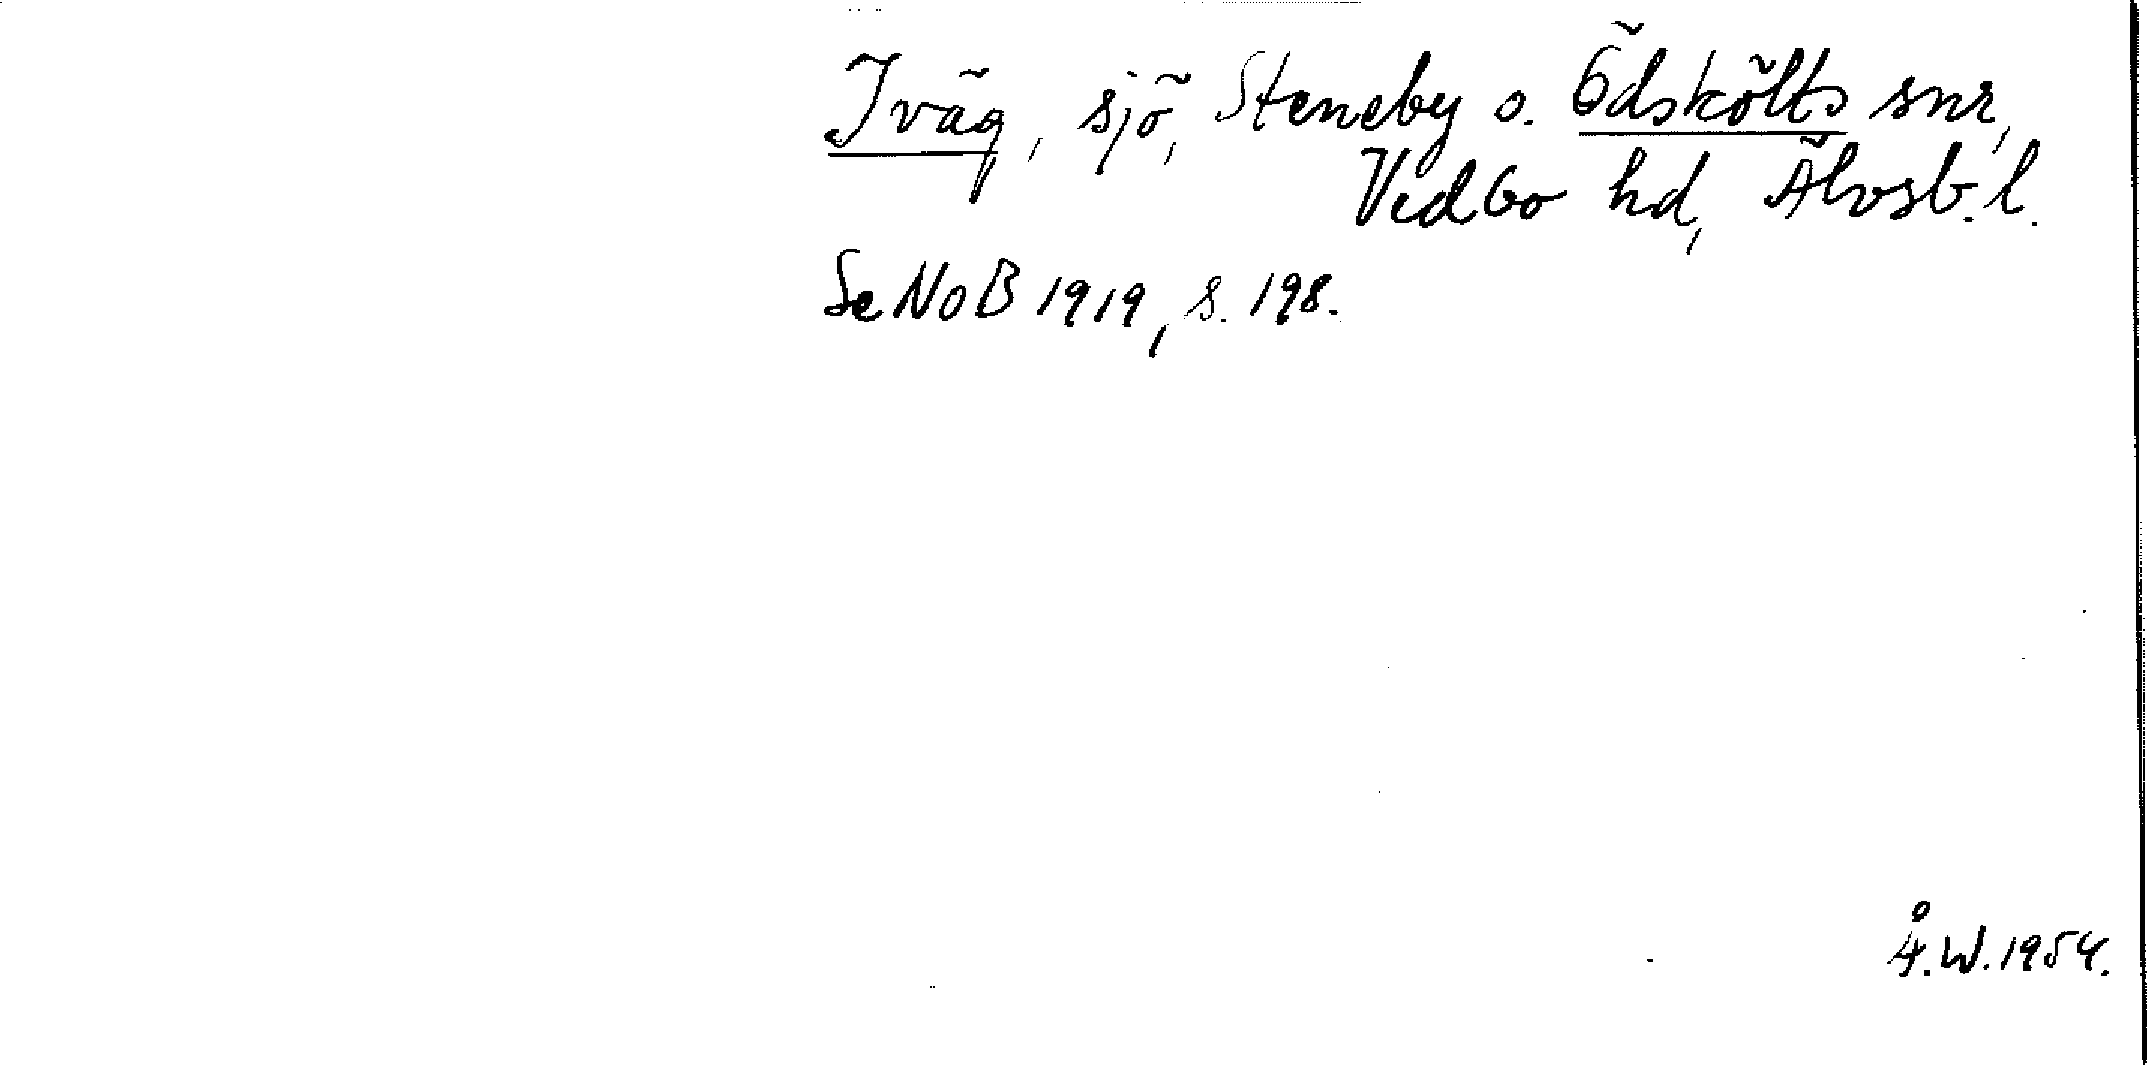 Iväg, sjö, Steneby o. Ödskölts snr,
Vedbo hd, Älvsb. l.
Se NoB 1919, s. 198.
Å.W. 1954.